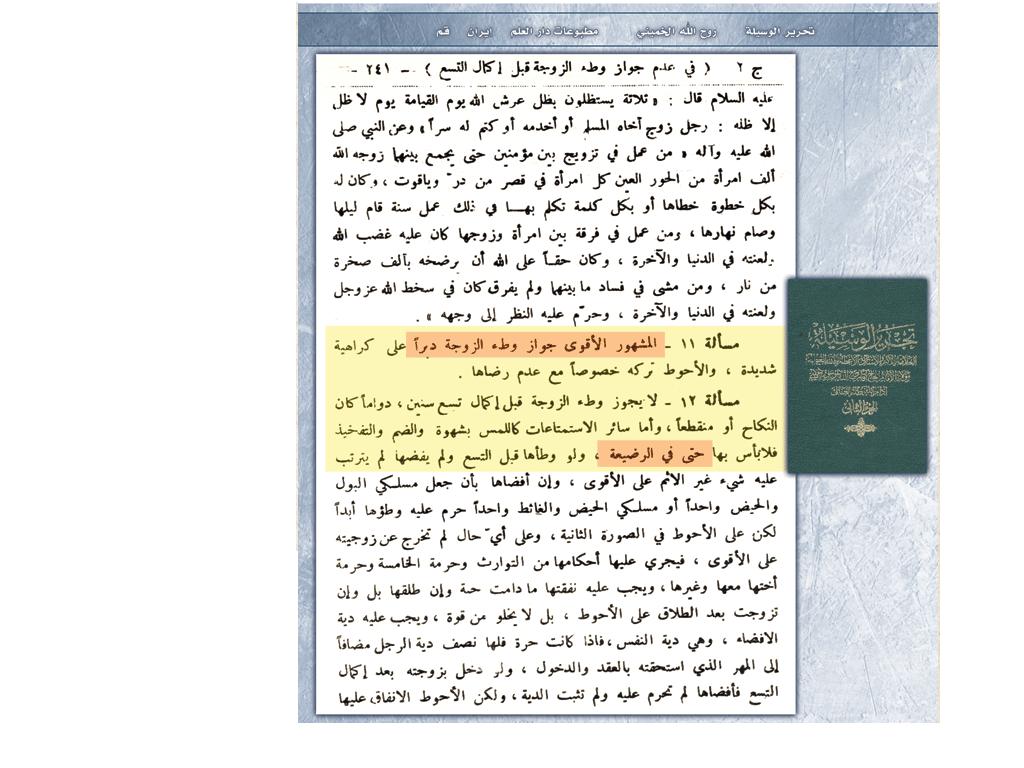 تحرير الوسيلة روح الله الخميني مطبوعات دار العلم ايران قم
ج ٢ ( في عدم جواز وطء الزوجة قبل إكمال التسع ) - ٢٤١ -
عليه السلام قال : « ثلاثة يستظلون بظل عرش الله يوم القيامة يوم لا ظل
إلا ظله : رجل زوج أخاه المسلم أو أخدمه أو كتم له سراً » وعن النبي صلى
الله عليه وآله « من عمل في تزويج بين مؤمنين حتى يجمع بينهما زوجه الله
ألف امرأة من الحور العين كل امرأة في قصر من درّ وياقوت ، وكان له
بكل خطوة خطاها أو بكل كلمة تكلم بهـا في ذلك عمل سنة قام ليلها
وصام نهارها ، ومن عمل في فرقة بين امرأة وزوجها كان عليه غضب الله
ولعنته في الدنيا والآخرة ، وكان حقـاً على الله أن يرضخه بألف صخرة
من نار ، ومن مشى في فساد ما بينهما ولم يفرق كان في سخط الله عز وجل
ولعنته في الدنيا والآخرة ، وحرّم عليه النظر إلى وجهه » .
مسألة ١١ - المشهور الأقوى جواز وطء الزوجة دبراً على كراهية
شديدة ، والأحوط تركه خصوصاً مع عدم رضاها .
مسألة ١٢ - لا يجوز وطء الزوجة قبل إكمال تسع سنين ، دواماً كان
النكاح أو منقطعاً ، وأما سائر الاستمتاعات كاللمس بشهوة والضم والتفخيذ
فلا بأس بها حتى في الرضيعة ، ولو وطأها قبل التسع ولم يفضها لم يترتب
عليه شيء غير الاثم على الأقوى ، وإن أفضاها بأن جعل مسلـكي البول
والحيض واحداً أو مسلـكي الحيض والغائط واحداً حرم عليه وطؤها أبداً
لكن على الأحوط في الصورة الثانية ، وعلى أيّ حال لم تخرج عن زوجيته
على الأقوى ، فيجري عليها أحكامها من التوارث وحرمة الخامسة وحرمة
أختها معها وغيرها ، ويجب عليه نفقتها ما دامت حية وإن طلقها بل وإن
تزوجت بعد الطلاق على الأحوط ، بل لا يخلو من قوة ، ويجب عليه دية
الافضاء ، وهي دية النفس ، فاذا كانت حرة فلها نصف دية الرجل مضافاً
إلى المهر الذي استحقته بالعقد والدخول ، ولو دخل بزوجته بعد إكمال
التسع فأفضاها لم تحرم عليه ولم تثبت الدية ، ولكن الأحوط الانفاق عليها
تحرير الوسيلة
الجزء الثاني